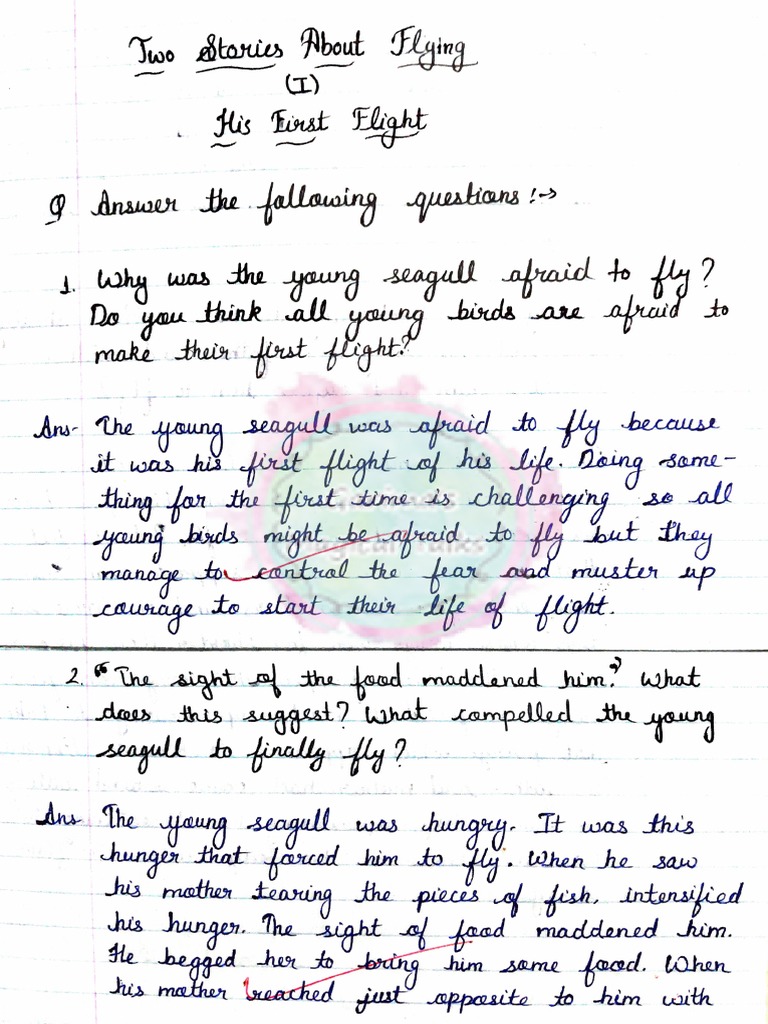 Two Stories About Flying
(I)
His First Flight
Q Answer the following questions :->
1. Why was the young seagull afraid to fly?
Do you think all young birds are afraid to
make their first flight?
Ans- The young seagull was afraid to fly because
it was his first flight of his life. Doing some-
thing for the first time is challenging so all
young birds might be afraid to fly but they
manage to control the fear and muster up
courage to start their life of flight.
2. "The sight of the food maddened him." What
does this suggest? What compelled the young
seagull to finally fly?
Ans The young seagull was hungry. It was this
hunger that forced him to fly. When he saw
his mother tearing the pieces of fish, intensified
his hunger. The sight of food maddened him.
He begged her to bring him some food. When
his mother reached just opposite to him with